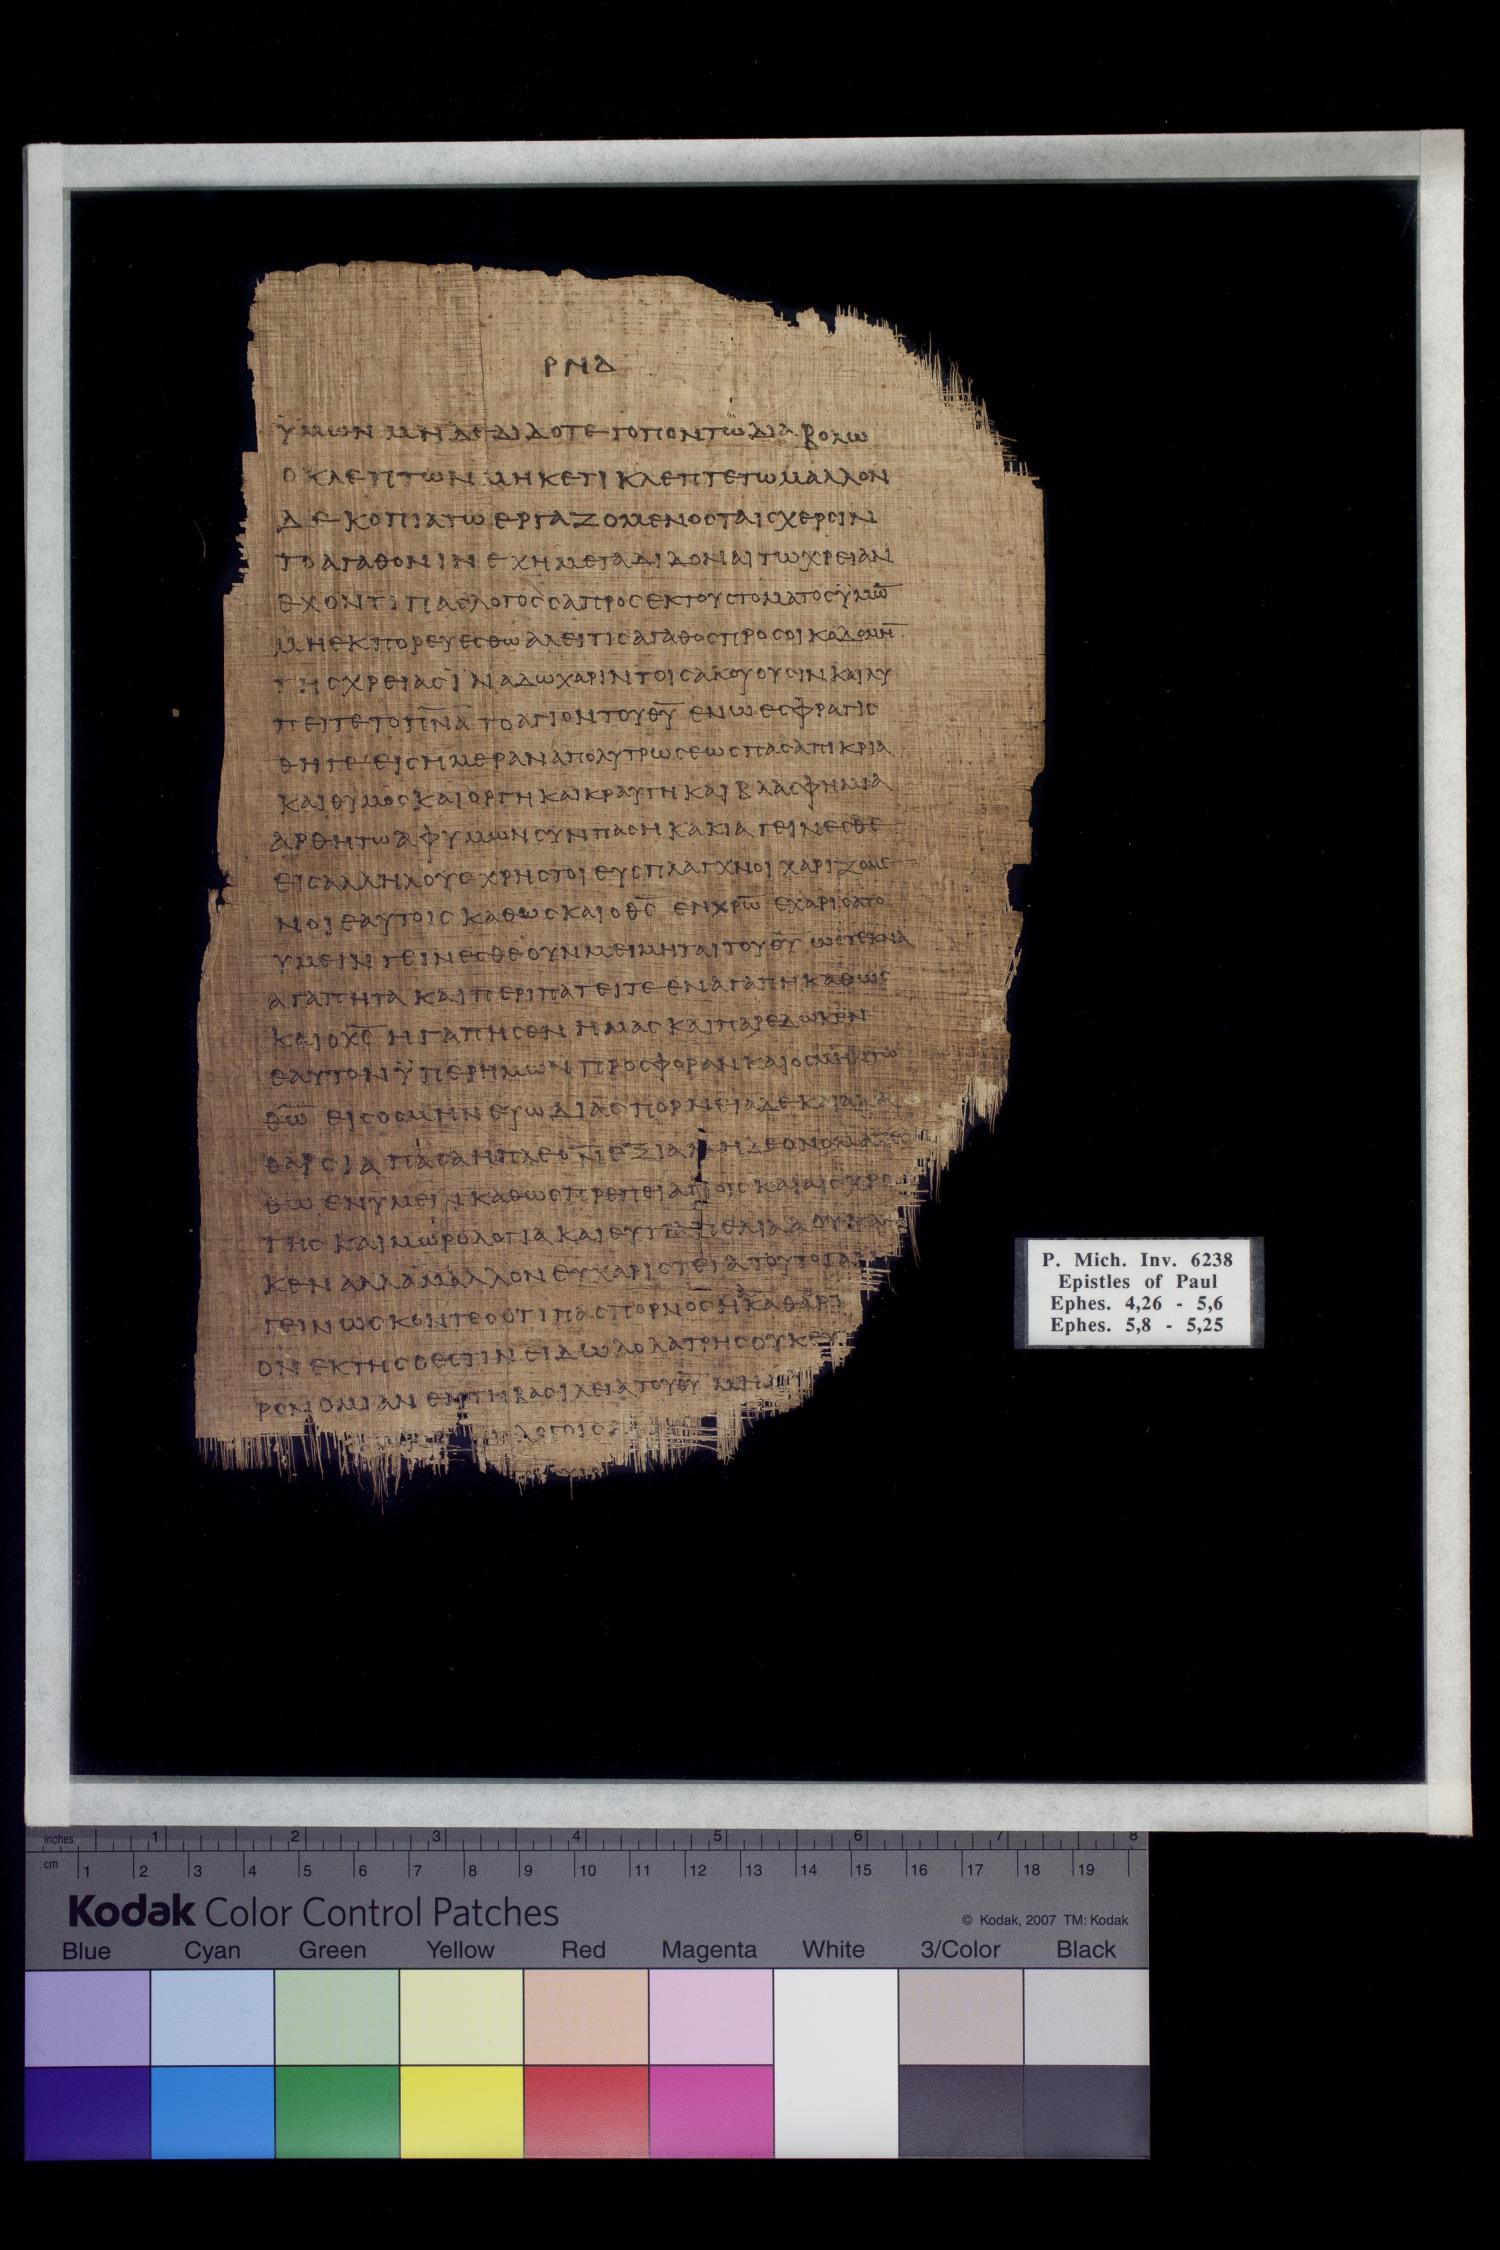 ΡΝΔ
ΫΜΩΝ ΜΗΔΕ ΔΙΔΟΤΕ ΤΟΠΟΝ ΤΩ ΔΙΑΒΟΛΩ
Ο ΚΛΕΠΤΩΝ ΜΗΚΕΤΙ ΚΛΕΠΤΕΤΩ ΜΑΛΛΟΝ
ΔΕ ΚΟΠΙΑΤΩ ΕΡΓΑΖΟΜΕΝΟΣ ΤΑΙΣ ΧΕΡΣΙΝ
ΤΟ ΑΓΑΘΟΝ ΙΝ ΕΧΗ ΜΕΤΑΔΙΔΟΝΑΙ ΤΩ ΧΡΕΙΑΝ
ΕΧΟΝΤΙ ΠΑΣ ΛΟΓΟΣ ΣΑΠΡΟΣ ΕΚ ΤΟΥ ΣΤΟΜΑΤΟΣ ΫΜΩ̅
ΜΗ ΕΚΠΟΡΕΥΕΣΘΩ ΑΛ ΕΙ ΤΙΣ ΑΓΑΘΟΣ ΠΡΟΣ ΟΙΚΟΔΟΜΗ̅
ΤΗΣ ΧΡΕΙΑΣ ΙΝΑ ΔΩ ΧΑΡΙΝ ΤΟΙΣ ΑΚΟΥΟΥΣΙΝ ΚΑΙ ΛΥ
ΠΕΙΤΕ ΤΟ Π̅Ν̅Α̅ ΤΟ ΑΓΙΟΝ ΤΟΥ Θ̅Υ̅ ΕΝ Ω ΕΣΦΡΑΓΙΣ
ΘΗΤΕ ΕΙΣ ΗΜΕΡΑΝ ΑΠΟΛΥΤΡΩΣΕΩΣ ΠΑΣΑ ΠΙΚΡΙΑ
ΚΑΙ ΘΥΜΟΣ ΚΑΙ ΟΡΓΗ ΚΑΙ ΚΡΑΥΓΗ ΚΑΙ ΒΛΑΣΦΗΜΙΑ
ΑΡΘΗΤΩ ΑΦ ΥΜΩΝ ΣΥΝ ΠΑΣΗ ΚΑΚΙΑ ΓΕΙΝΕΣΘΕ
ΕΙΣ ΑΛΛΗΛΟΥΣ ΧΡΗΣΤΟΙ ΕΥΣΠΛΑΓΧΝΟΙ ΧΑΡΙΖΟΜΕ
ΝΟΙ ΕΑΥΤΟΙΣ ΚΑΘΩΣ ΚΑΙ Ο Θ̅Σ̅ ΕΝ Χ̅Ρ̅Ω̅ ΕΧΑΡΙΣΑΤΟ
ΥΜΕΙΝ ΓΕΙΝΕΣΘΕ ΟΥΝ ΜΕΙΜΗΤΑΙ ΤΟΥ Θ̅Υ̅ ΩΣ ΤΕΚΝΑ
ΑΓΑΠΗΤΑ ΚΑΙ ΠΕΡΙΠΑΤΕΙΤΕ ΕΝ ΑΓΑΠΗ ΚΑΘΩΣ
ΚΑΙ Ο Χ̅Σ̅ ΗΓΑΠΗΣΕΝ ΗΜΑΣ ΚΑΙ ΠΑΡΕΔΩΚΕΝ
ΕΑΥΤΟΝ ΫΠΕΡ ΗΜΩΝ ΠΡΟΣΦΟΡΑΝ ΚΑΙ ΤΩ
Θ̅Ω̅ ΕΙΣ ΟΣΜΗΝ ΕΥΩΔΙΑΣ ΠΟΡΝΕΙΑ ΔΕ ΚΑΙ ΑΚΑ
ΘΑΡΣΙΑ ΠΑΣΑ Η ΠΛΕΟΝΕΞΙΑ ΜΗΔΕ ΟΝΟΜΑΖΕΣ
ΘΩ ΕΝ ΥΜΕΙΝ ΚΑΘΩΣ ΠΡΕΠΕΙ ΑΓΙΟΙΣ ΚΑΙ ΑΙΣΧΡΟ
ΤΗΣ ΚΑΙ ΜΩΡΟΛΟΓΙΑ ΚΑΙ ΕΥΤΡΑΠΕΛΙΑ Α ΟΥΚ ΑΝ
ΚΕΝ ΑΛΛΑ ΜΑΛΛΟΝ ΕΥΧΑΡΙΣΤΕΙΑ ΤΟΥΤΟ ΓΑΡ
ΓΕΙΝΩΣΚΟΝΤΕΣ ΟΤΙ ΠΑΣ ΠΟΡΝΟΣ Η ΑΚΑΘΑΡΤ
ΟΝΕΚΤΗΣ Ο ΕΣΤΙΝ ΕΙΔΩΛΟΛΑΤΡΗΣ ΟΥΚ Ε
ΡΟΝΟΜΙΑΝ ΕΝ ΤΗ ΒΑΣΙΛΕΙΑ ΤΟΥ Θ̅Υ̅ ΜΗ
ΛΟΓΟΙΣ
P. Mich. Inv. 6238
Epistles of Paul
Ephes. 4,26 - 5,6
Ephes. 5,8 - 5,25
inches 1 2 3 4 5 6 7 8
cm 1 2 3 4 5 6 7 8 9 10 11 12 13 14 15 16 17 18 19
Kodak Color Control Patches
© Kodak, 2007 TM: Kodak
Blue Cyan Green Yellow Red Magenta White 3/Color Black